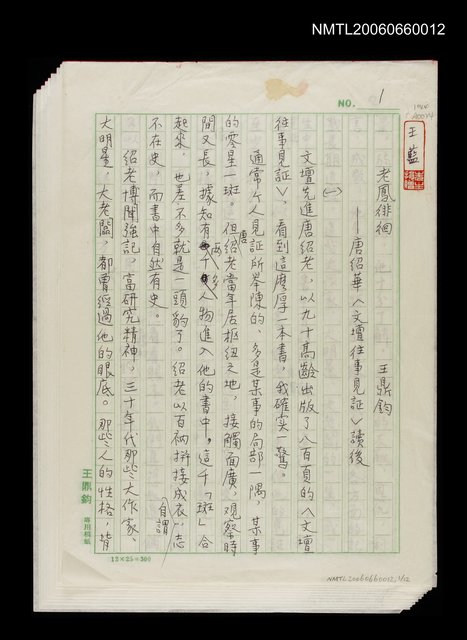 NMTL20060660012
NO. 1
王藍
老鳳徘徊　王鼎鈞
——唐紹華〈文壇往事見証〉讀後
(一)
文壇先進唐紹老，以九十高齡出版了八百頁的〈文壇
往事見証〉，看到這麼厚一本書，我確實一驚。
通常個人見証所舉陳的，多是某事的局部一隅，某事
的零星一斑。但唐紹老當年居樞紐之地，接觸面廣，觀察時
間又長，據知有兩千多人物進入他的書中，這千「斑」合
起來，也差不多就是一頭豹了。紹老以百衲拼接成衣，自謂志
不在史，而書中自然有史。
紹老博聞強記，富研究精神，三十年代那些大作家、
大明星、大老闆，都曾經過他的眼底。那些人的性格，背
王鼎鈞 專用稿紙
12×25=300
NMTL20060660012, 1/12